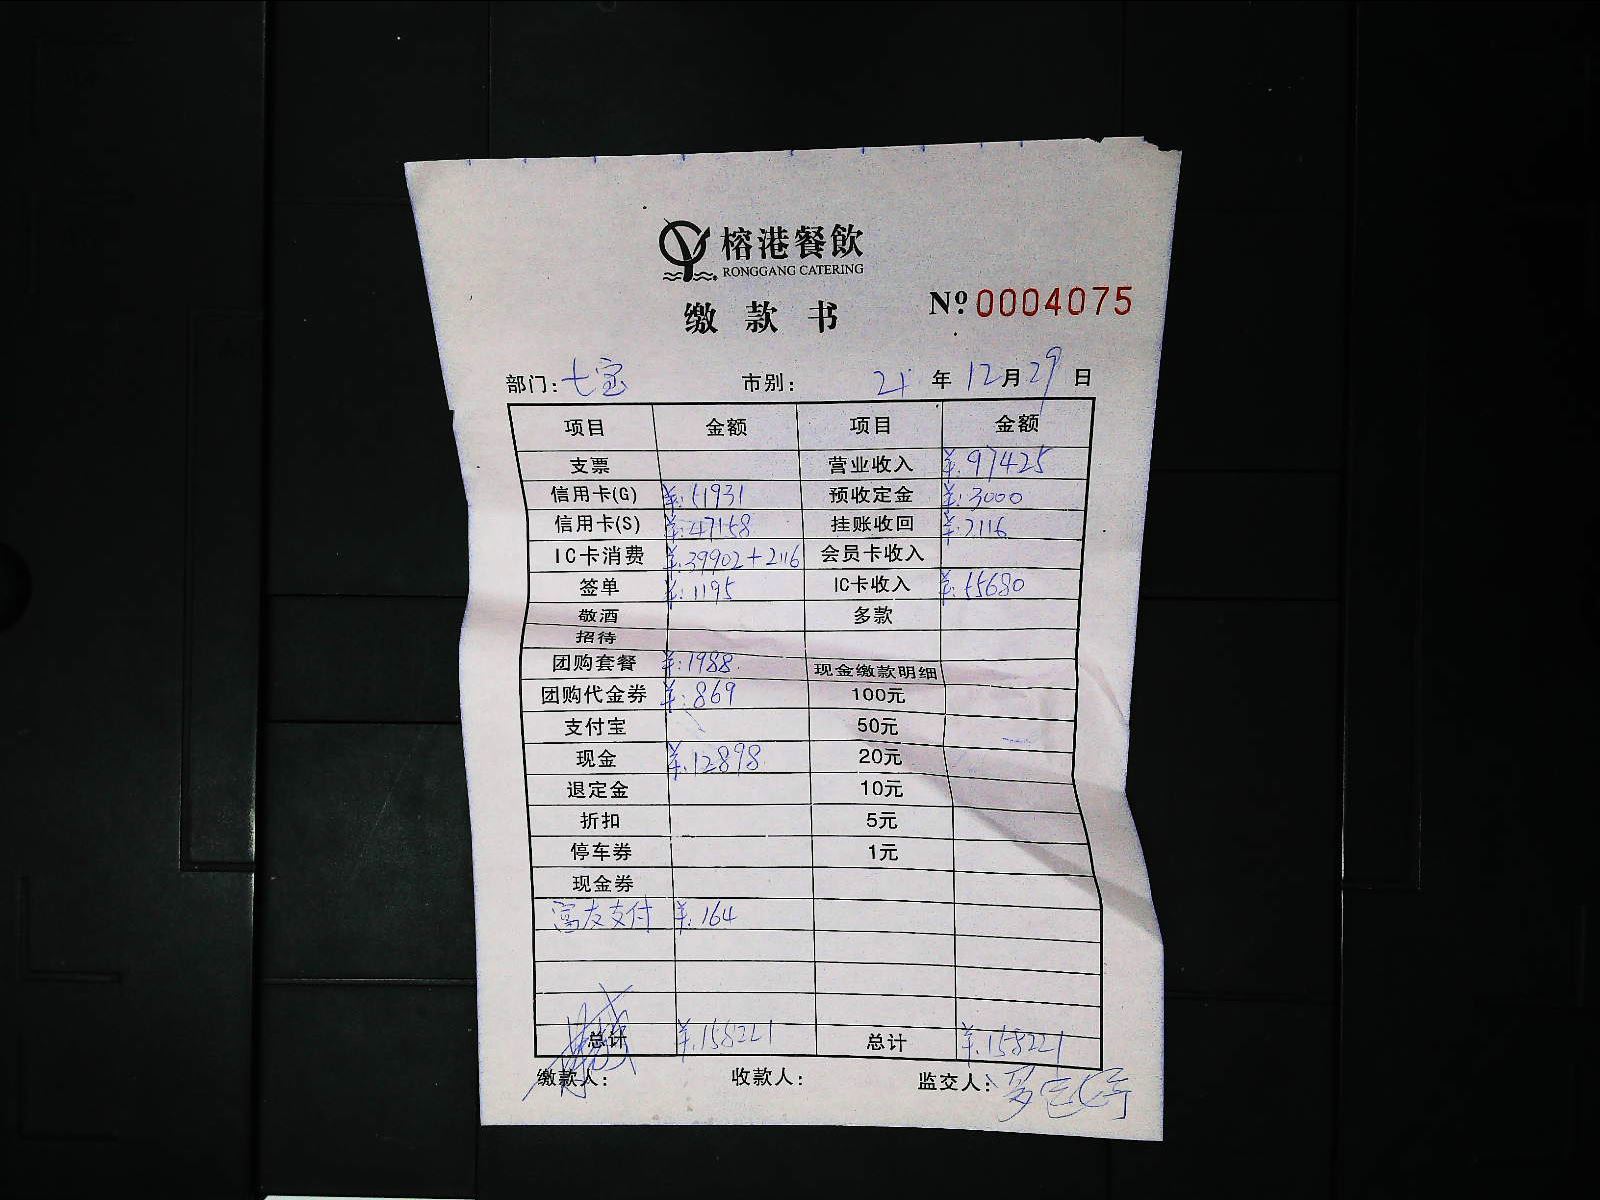 榕港餐飲
RONGGANG CATERING
缴款书
№ 0004075
部门：七宝 市别： 21 年 12 月 29 日
项目 金额 项目 金额
支票 营业收入 ¥:97425
信用卡(G) ¥:51931 预收定金 ¥:3000
信用卡(S) ¥:47158 挂账收回 ¥:2116
IC卡消费 ¥:39902+2116 会员卡收入
签单 ¥:1195 IC卡收入 ¥:55680
敬酒 多款
招待
团购套餐 ¥:1988 现金缴款明细
团购代金券 ¥:869 100元
支付宝 50元
现金 ¥:12898 20元
退定金 10元
折扣 5元
停车券 1元
现金券
富友支付 ¥:164
总计 ¥:158221 总计 ¥:158221
缴款人： 收款人： 监交人：